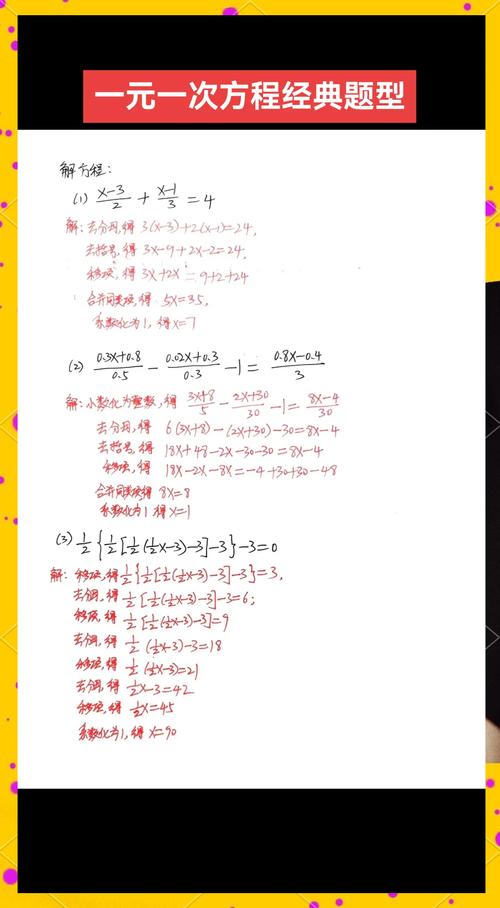 一元一次方程经典题型
解方程:
(1) (x-3)/2 + (x-1)/3 = 4
解: 去分母,得 3(x-3)+2(x-1)=24,
去括号,得 3x-9+2x-2=24,
移项,得 3x+2x=9+2+24
合并同类项,得 5x=35,
系数化为1,得 x=7
(2) (0.3x+0.8)/0.5 - (0.02x+0.3)/0.3 - 1 = (0.8x-0.4)/3
解: 小数化为整数,得 (3x+8)/5 - (2x+30)/30 - 1 = (8x-4)/30
去分母,得 6(3x+8)-(2x+30)-30=8x-4
去括号,得 18x+48-2x-30-30=8x-4
移项,得 18x-2x-8x=-4+30+30-48
合并同类项,得 8x=8
系数化为1,得 x=1
(3) 1/2{1/2[1/2(1/2x-3)-3]-3}-3=0
解: 移项,得 1/2{1/2[1/2(1/2x-3)-3]-3}=3,
去分母,得 1/2[1/2(1/2x-3)-3]-3=6;
移项,得 1/2[1/2(1/2x-3)-3]=9
去分母,得 1/2(1/2x-3)-3=18
移项,得 1/2(1/2x-3)=21
去分母,得 1/2x-3=42
移项,得 1/2x=45
系数化为1,得 x=90